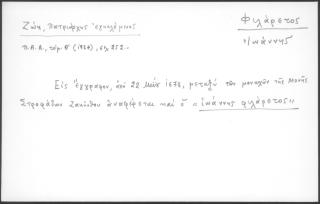 Ζώη, πατριάρχης
Φιλάρετος
Ἰωάννης
Π.Α.Α., τόμ. (1938), σελ. 252.-
Εἰς ἔγγραφον, ἀπό 22 Μαΐου 1678, μεταξύ τῶν μοναχῶν τῆς μονῆς
Στροφάδων Ζακύνθου ἀναφέρεται καί ὁ "ἰωάννης φιλάρετος"